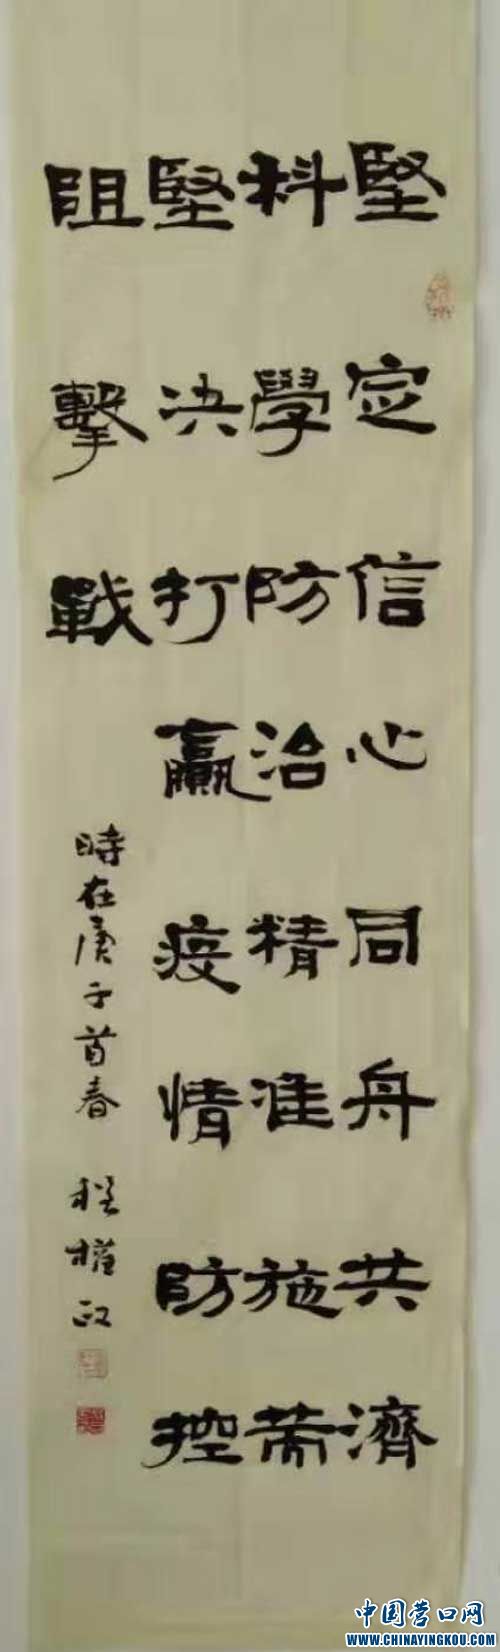 堅定信心同舟共濟
科學防治精准施策
堅决打贏疫情防控
阻擊戰
時在庚子首春 程權政
中国营口网
WWW.CHINAYINGKOU.COM